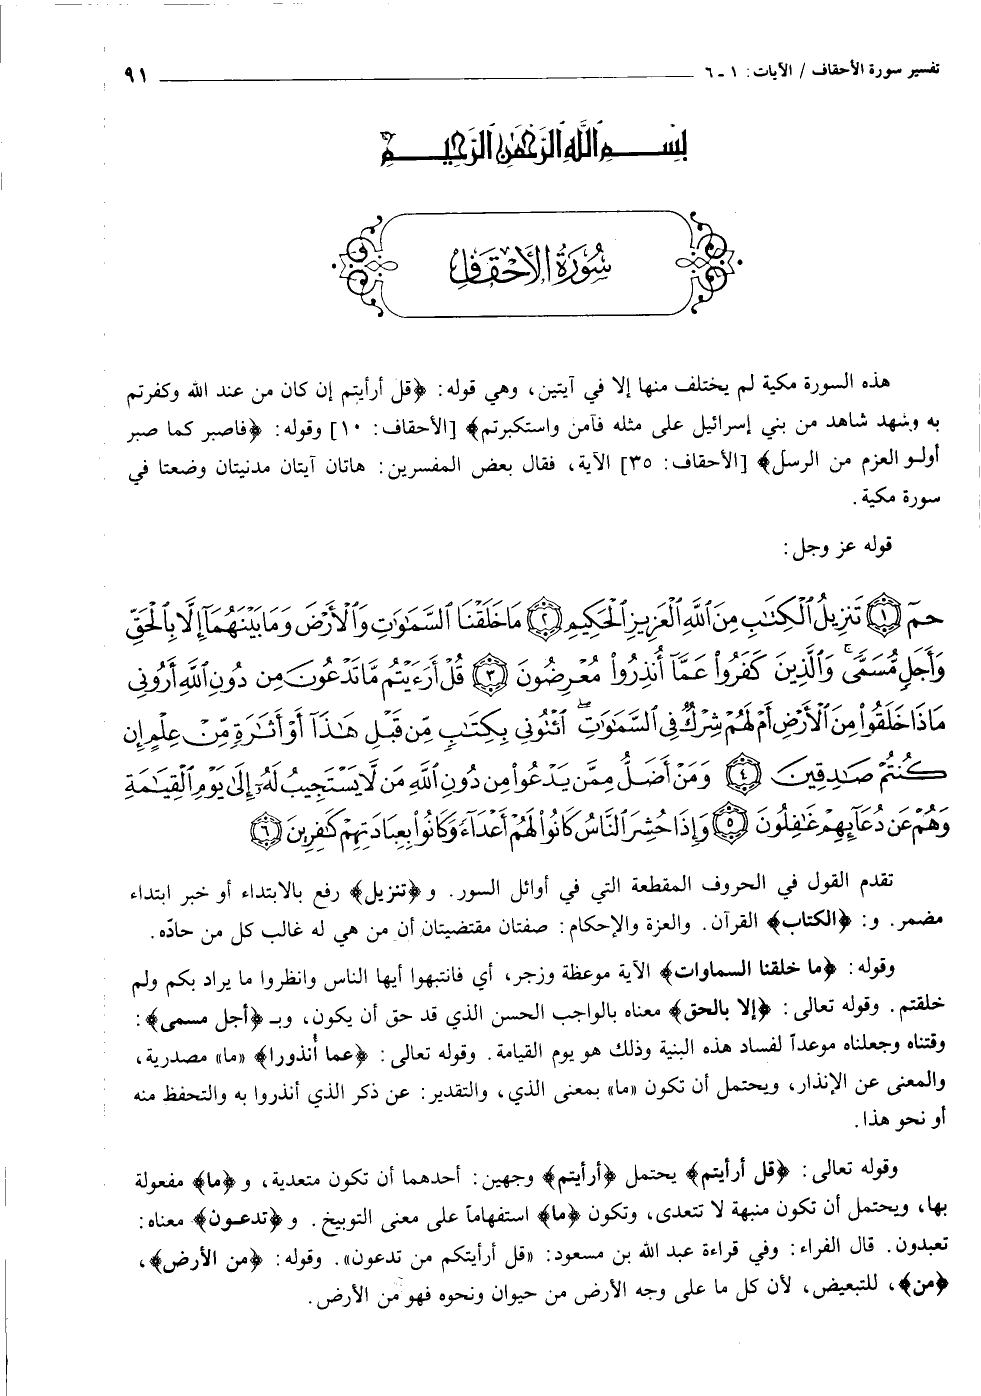 تفسير سورة الأحقاف / الآيات: ١ - ٦ ٩١
بسم الله الرحمن الرحيم
سورة الأحقاف
هذه السورة مكية لم يختلف منها إلا في آيتين، وهي قوله: ﴿قل أرأيتم إن كان من عند الله وكفرتم
به وشهد شاهد من بني إسرائيل على مثله فآمن واستكبرتم﴾ [الأحقاف: ١٠] وقوله: ﴿فاصبر كما صبر
أولو العزم من الرسل﴾ [الأحقاف: ٣٥] الآية، فقال بعض المفسرين: هاتان آيتان مدنيتان وضعتا في
سورة مكية.
قوله عز وجل:
حمٓ ﴿١﴾ تَنزِيلُ ٱلْكِتَٰبِ مِنَ ٱللَّهِ ٱلْعَزِيزِ ٱلْحَكِيمِ ﴿٢﴾ مَا خَلَقْنَا ٱلسَّمَٰوَٰتِ وَٱلْأَرْضَ وَمَا بَيْنَهُمَآ إِلَّا بِٱلْحَقِّ
وَأَجَلٍ مُّسَمًّى ۚ وَٱلَّذِينَ كَفَرُوا۟ عَمَّآ أُنذِرُوا۟ مُعْرِضُونَ ﴿٣﴾ قُلْ أَرَءَيْتُم مَّا تَدْعُونَ مِن دُونِ ٱللَّهِ أَرُونِى
مَاذَا خَلَقُوا۟ مِنَ ٱلْأَرْضِ أَمْ لَهُمْ شِرْكٌ فِى ٱلسَّمَٰوَٰتِ ۖ ٱئْتُونِى بِكِتَٰبٍ مِّن قَبْلِ هَٰذَآ أَوْ أَثَٰرَةٍ مِّنْ عِلْمٍ إِن
كُنتُمْ صَٰدِقِينَ ﴿٤﴾ وَمَنْ أَضَلُّ مِمَّن يَدْعُوا۟ مِن دُونِ ٱللَّهِ مَن لَّا يَسْتَجِيبُ لَهُۥٓ إِلَىٰ يَوْمِ ٱلْقِيَٰمَةِ
وَهُمْ عَن دُعَآئِهِمْ غَٰفِلُونَ ﴿٥﴾ وَإِذَا حُشِرَ ٱلنَّاسُ كَانُوا۟ لَهُمْ أَعْدَآءً وَكَانُوا۟ بِعِبَادَتِهِمْ كَٰفِرِينَ ﴿٦﴾
تقدم القول في الحروف المقطعة التي في أوائل السور. و﴿تنزيل﴾ رفع بالابتداء أو خبر ابتداء
مضمر. و: ﴿الكتاب﴾ القرآن. والعزة والإحكام: صفتان مقتضيتان أن من هي له غالب كل من حادّه.
وقوله: ﴿ما خلقنا السماوات﴾ الآية موعظة وزجر، أي فانتبهوا أيها الناس وانظروا ما يراد بكم ولم
خلقتم. وقوله تعالى: ﴿إلا بالحق﴾ معناه بالواجب الحسن الذي قد حق أن يكون، وبـ ﴿أجل مسمى﴾:
وقتناه وجعلناه موعداً لفساد هذه البنية وذلك هو يوم القيامة. وقوله تعالى: ﴿عما أُنذورا﴾ «ما» مصدرية،
والمعنى عن الإنذار، ويحتمل أن تكون «ما» بمعنى الذي، والتقدير: عن ذكر الذي أنذروا به والتحفظ منه
أو نحو هذا.
وقوله تعالى: ﴿قل أرأيتم﴾ يحتمل ﴿أرأيتم﴾ وجهين: أحدهما أن تكون متعدية، و﴿ما﴾ مفعولة
بها، ويحتمل أن تكون منبهة لا تتعدى، وتكون ﴿ما﴾ استفهاماً على معنى التوبيخ. و﴿تدعون﴾ معناه:
تعبدون. قال الفراء: وفي قراءة عبد الله بن مسعود: «قل أرأيتكم من تدعون». وقوله: ﴿من الأرض﴾،
﴿من﴾، للتبعيض، لأن كل ما على وجه الأرض من حيوان ونحوه فهو من الأرض.